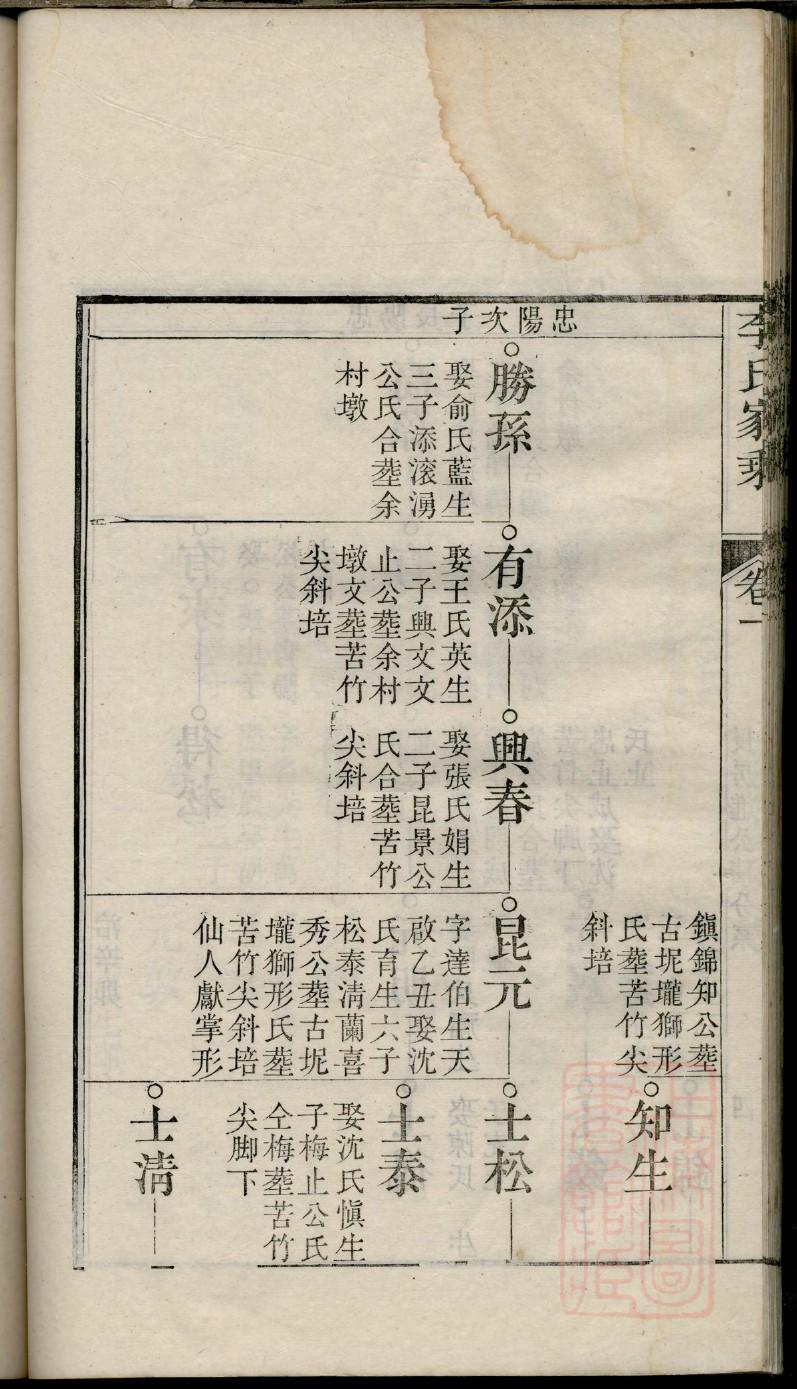 李氏家乘
卷一
忠陽次子
鎭錦知公塟
古坭壠獅形
氏塟苦竹尖
斜培
知生
勝孫
娶俞氏藍生
三子添滚湧
公氏合塟余
村墩
有添
娶王氏英生
二子興文文
止公塟余村
墩文塟苦竹
尖斜培
興春
娶張氏娟生
二子昆景公
氏合塟苦竹
尖斜培
昆元
字達伯生天
啟乙丑娶沈
氏育生六子
松泰清蘭喜
秀公塟古坭
壠獅形氏塟
苦竹尖斜培
仙人獻掌形
士松
士泰
娶沈氏愼生
子梅止公氏
仝梅塟苦竹
尖脚下
士清